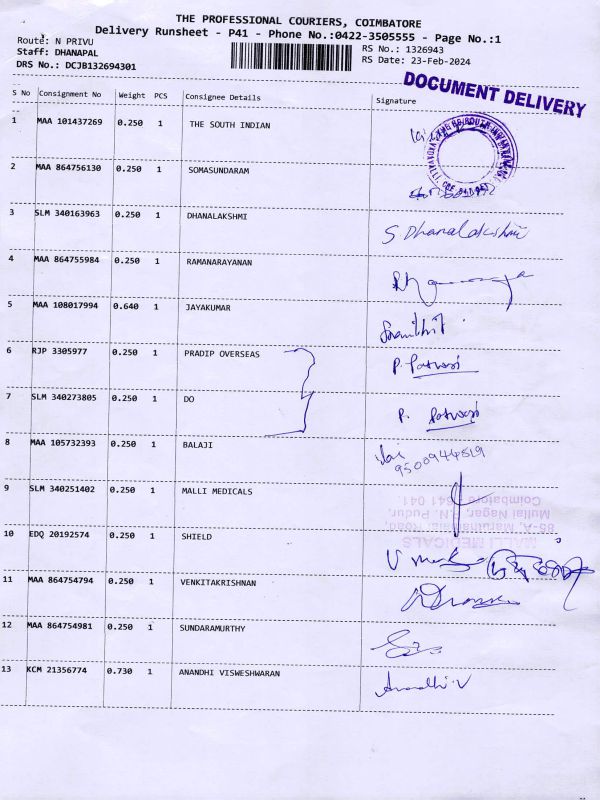 THE PROFESSIONAL COURIERS, COIMBATORE
Delivery Runsheet - P41 - Phone No.:0422-3505555 - Page No.:1
Route: N PRIVU
RS No.: 1326943
Staff: DHANAPAL
RS Date: 23-Feb-2024
DRS No.: DCJB132694301
DOCUMENT DELIVERY
S No Consignment No Weight PCS Consignee Details Signature
1 MAA 101437269 0.250 1 THE SOUTH INDIAN
2 MAA 864756130 0.250 1 SOMASUNDARAM
3 SLM 340163963 0.250 1 DHANALAKSHMI S Dhanalakshmi
4 MAA 864755984 0.250 1 RAMANARAYANAN
5 MAA 108017994 0.640 1 JAYAKUMAR
6 RJP 3305977 0.250 1 PRADIP OVERSEAS
7 SLM 340273805 0.250 1 DO
8 MAA 105732393 0.250 1 BALAJI
9500944519
9 SLM 340251402 0.250 1 MALLI MEDICALS
MALLI MEDICALS
Mullai Nagar, P.N. Pudur,
Coimbatore - 641 041.
10 EDQ 20192574 0.250 1 SHIELD
11 MAA 864754794 0.250 1 VENKITAKRISHNAN
12 MAA 864754981 0.250 1 SUNDARAMURTHY
13 KCM 21356774 0.730 1 ANANDHI VISWESHWARAN Anandhi.V